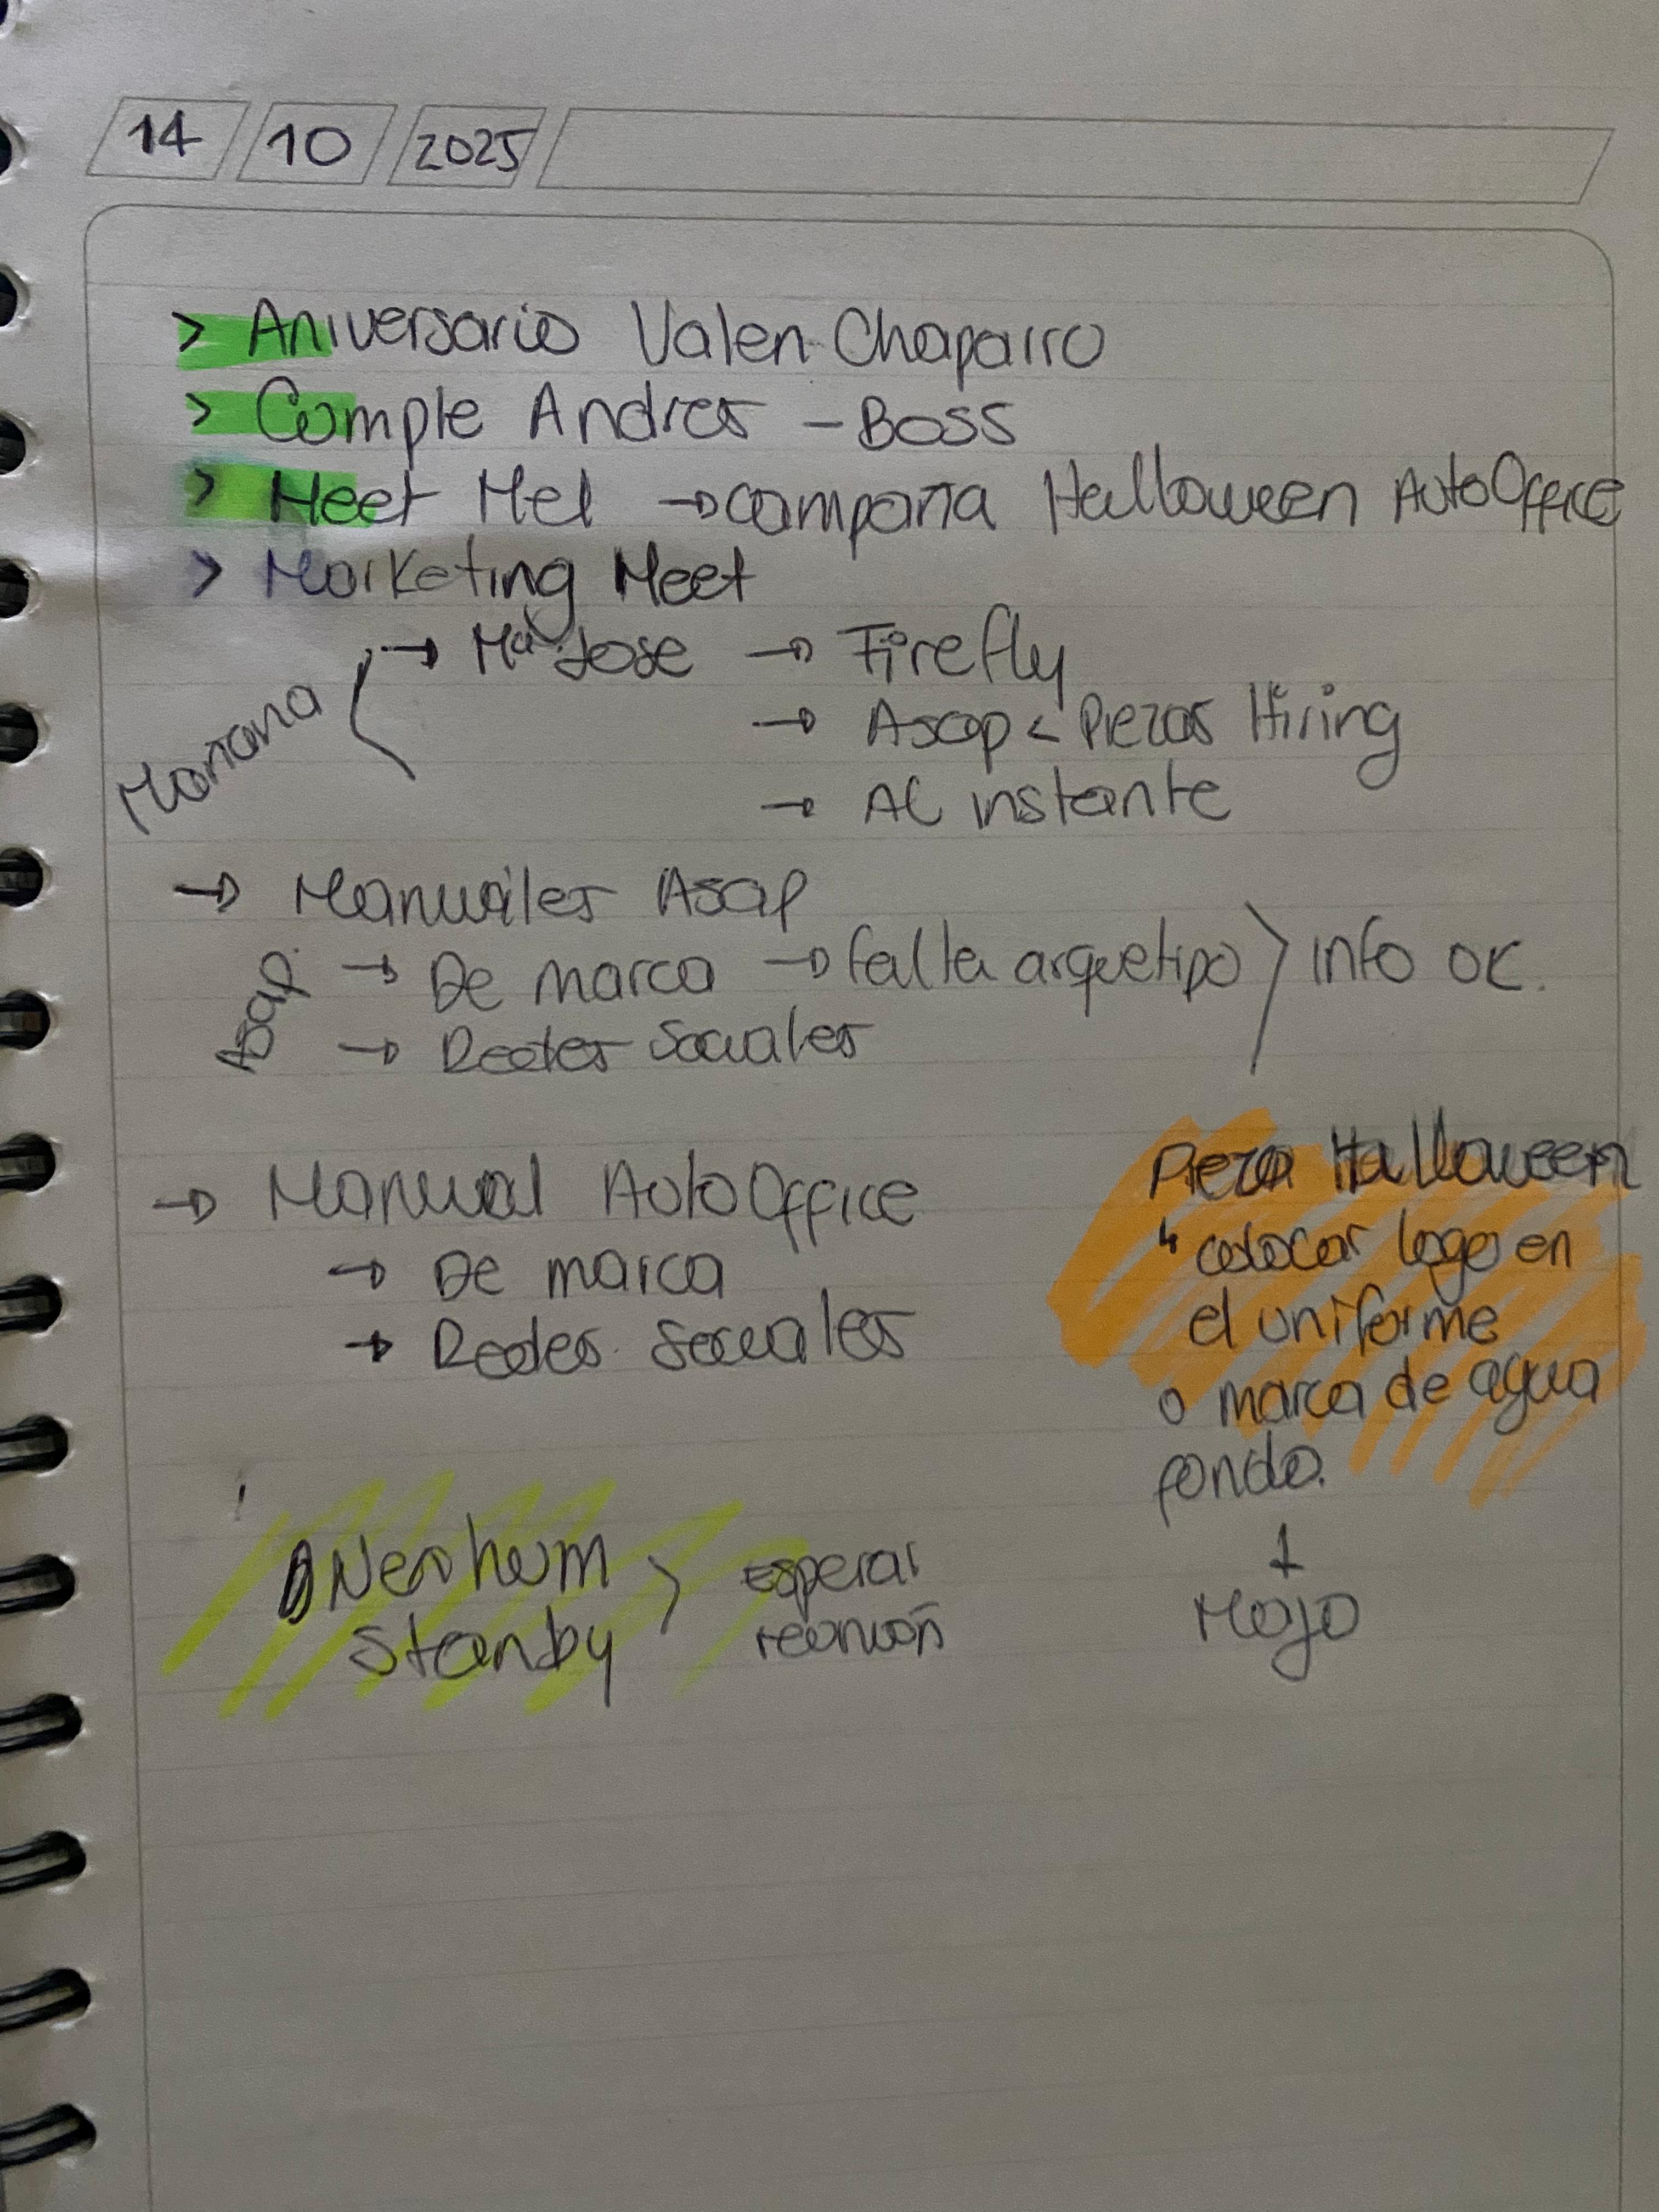 14 10 2025
> Aniversario Valen Chaparro
> Cumple Andres - Boss
> Meet Mel → campaña Halloween AutoOffice
> Marketing Meet
Mañana → Mª Jose → Firefly
→ Asap < Piezas Hiring
→ Al instante
→ Manuales Asap
Asap. → De marca → falta arquetipo > info ok.
→ Redes Sociales
→ Manual AutoOffice
→ De marca
→ Redes Sociales
Pieza Halloween
↳ colocar logo en
el uniforme
o marca de agua
fondo.
Mojo
stanby > Esperar
reunión